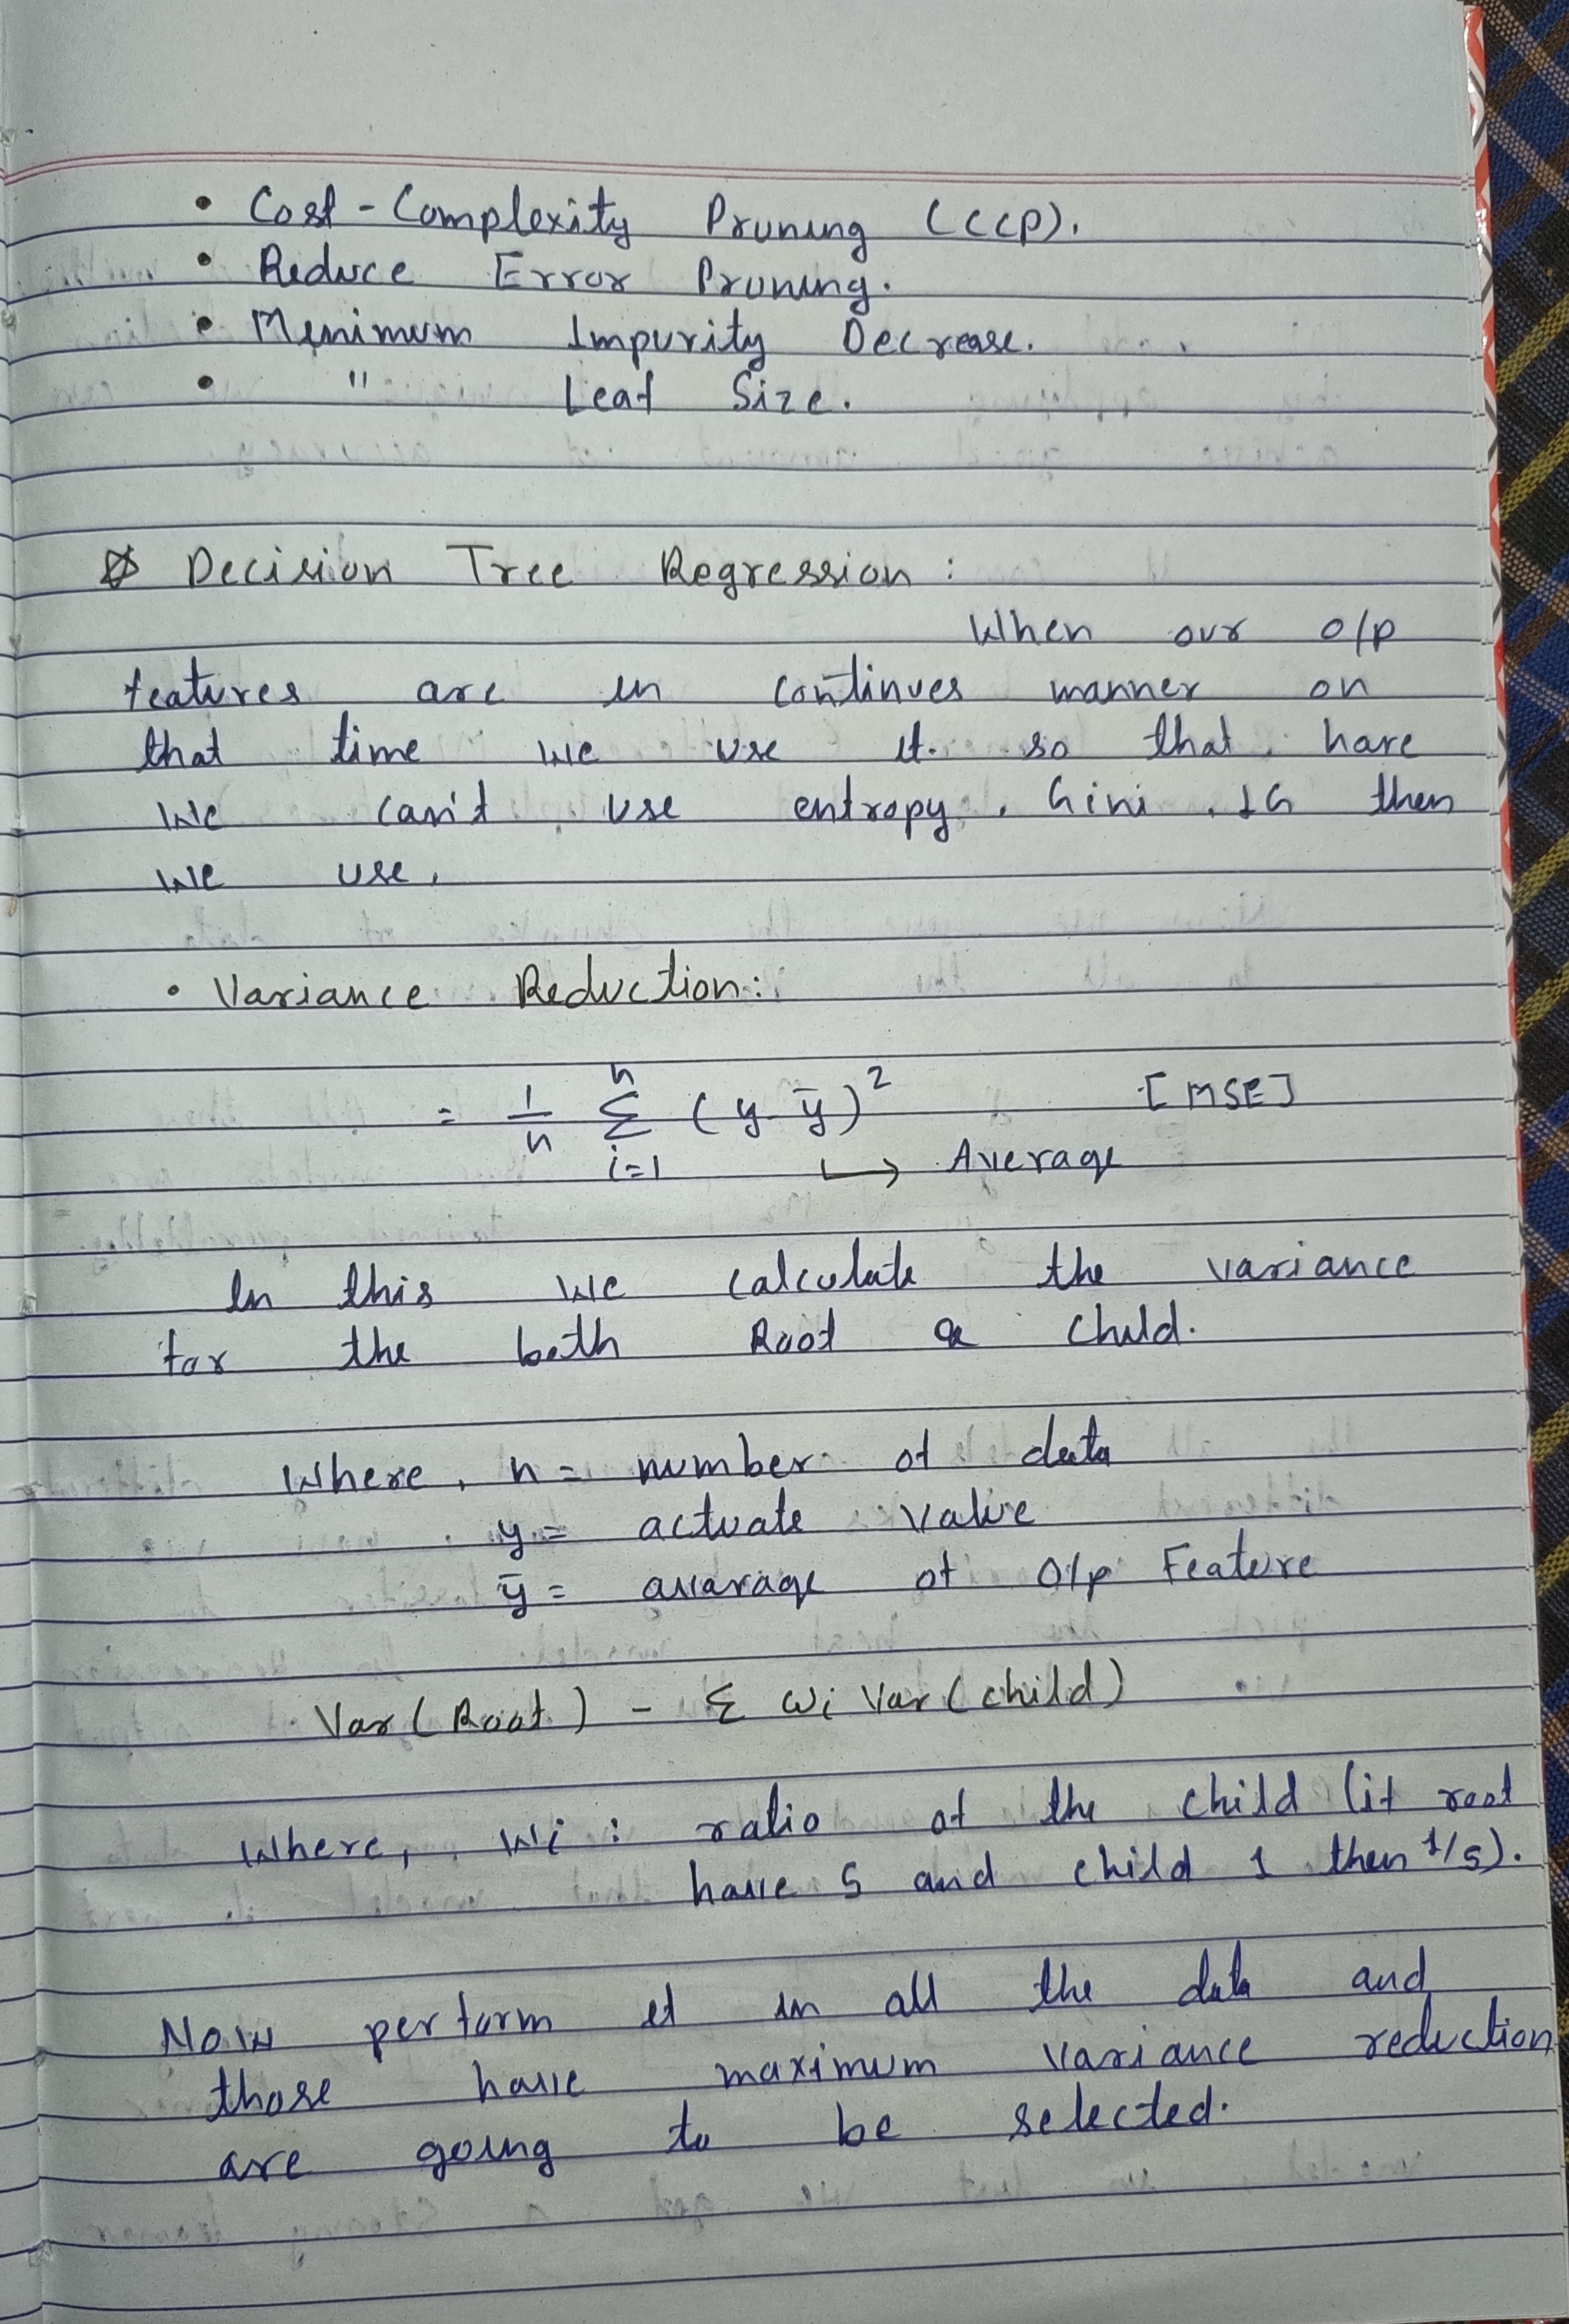 • Cost-Complexity Pruning (CCP).
• Reduce Error Pruning.
• Menimum Impurity Decrease.
• " Leaf Size.
Decision Tree Regression :
When our o/p
features are in continues manner on
that time we use it. so that hare
we can't use entropy, Gini, IG then
we use,
• Variance Reduction:
= 1/n Σ_{i=1}^{n} (y-ȳ)² [MSE]
↳ Average
In this we calculate the variance
for the both Root & Child.
Where, n = number of data
y = actuate value
ȳ = avarage of O/p Feature
Var (Root) - Σ wi Var (child)
Where, Wi : ratio of the child (if root
have 5 and child 1 then 1/5).
Now perform it in all the data and
those have maximum variance reduction
are going to be selected.